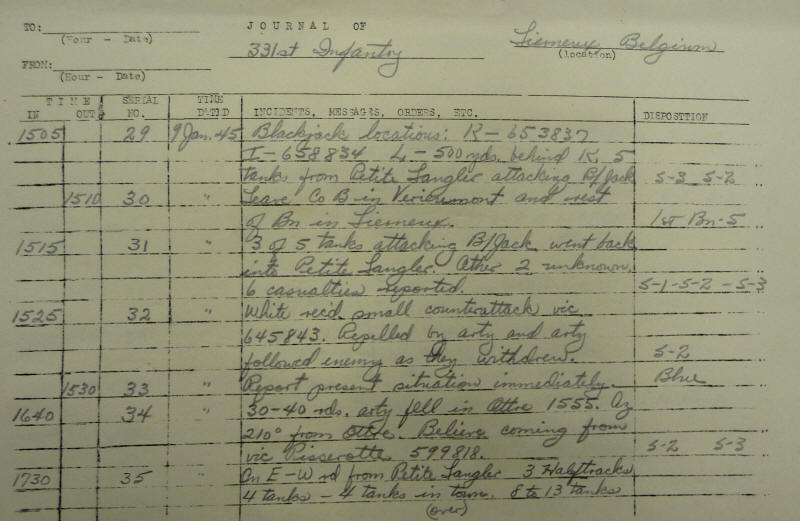 TO: JOURNAL OF
(Hour - Date) 331st Infantry Liemeux Belgium
FROM: (location)
(Hour - Date)
TIME SERIAL TIME
IN OUT NO. DATED INCIDENTS, MESSAGES, ORDERS, ETC. DISPOSITION
1505 29 9 Jan. 45 Blackjack locations: K-653837
I-658834 L-500 yds. behind K. 5
tanks from Petite Langler attacking B/Jack S-3 S-2
1510 30 " Leave Co B in and rest
of Bn in Liemeux. 1st Bn-S
1515 31 " 3 of 5 tanks attacking B/Jack went back
into Petite Langler. Other 2 unknown.
6 casualties reported. S-1-S-2-S-3
1525 32 " White recd. small counterattack vic
645843. Repelled by arty and arty
followed enemy as they withdrew. S-2
1530 33 " Report present situation immediately. Blue
1640 34 " 30-40 rds. arty fell in Ottre 1555. Az
210° from Ottre. Believe coming from
vic Pisserotte 599818. S-2 S-3
1730 35 " On E-W rd from Petite Langler 3 Halftracks
4 tanks - 4 tanks in town. 8 to 13 tanks
(over)